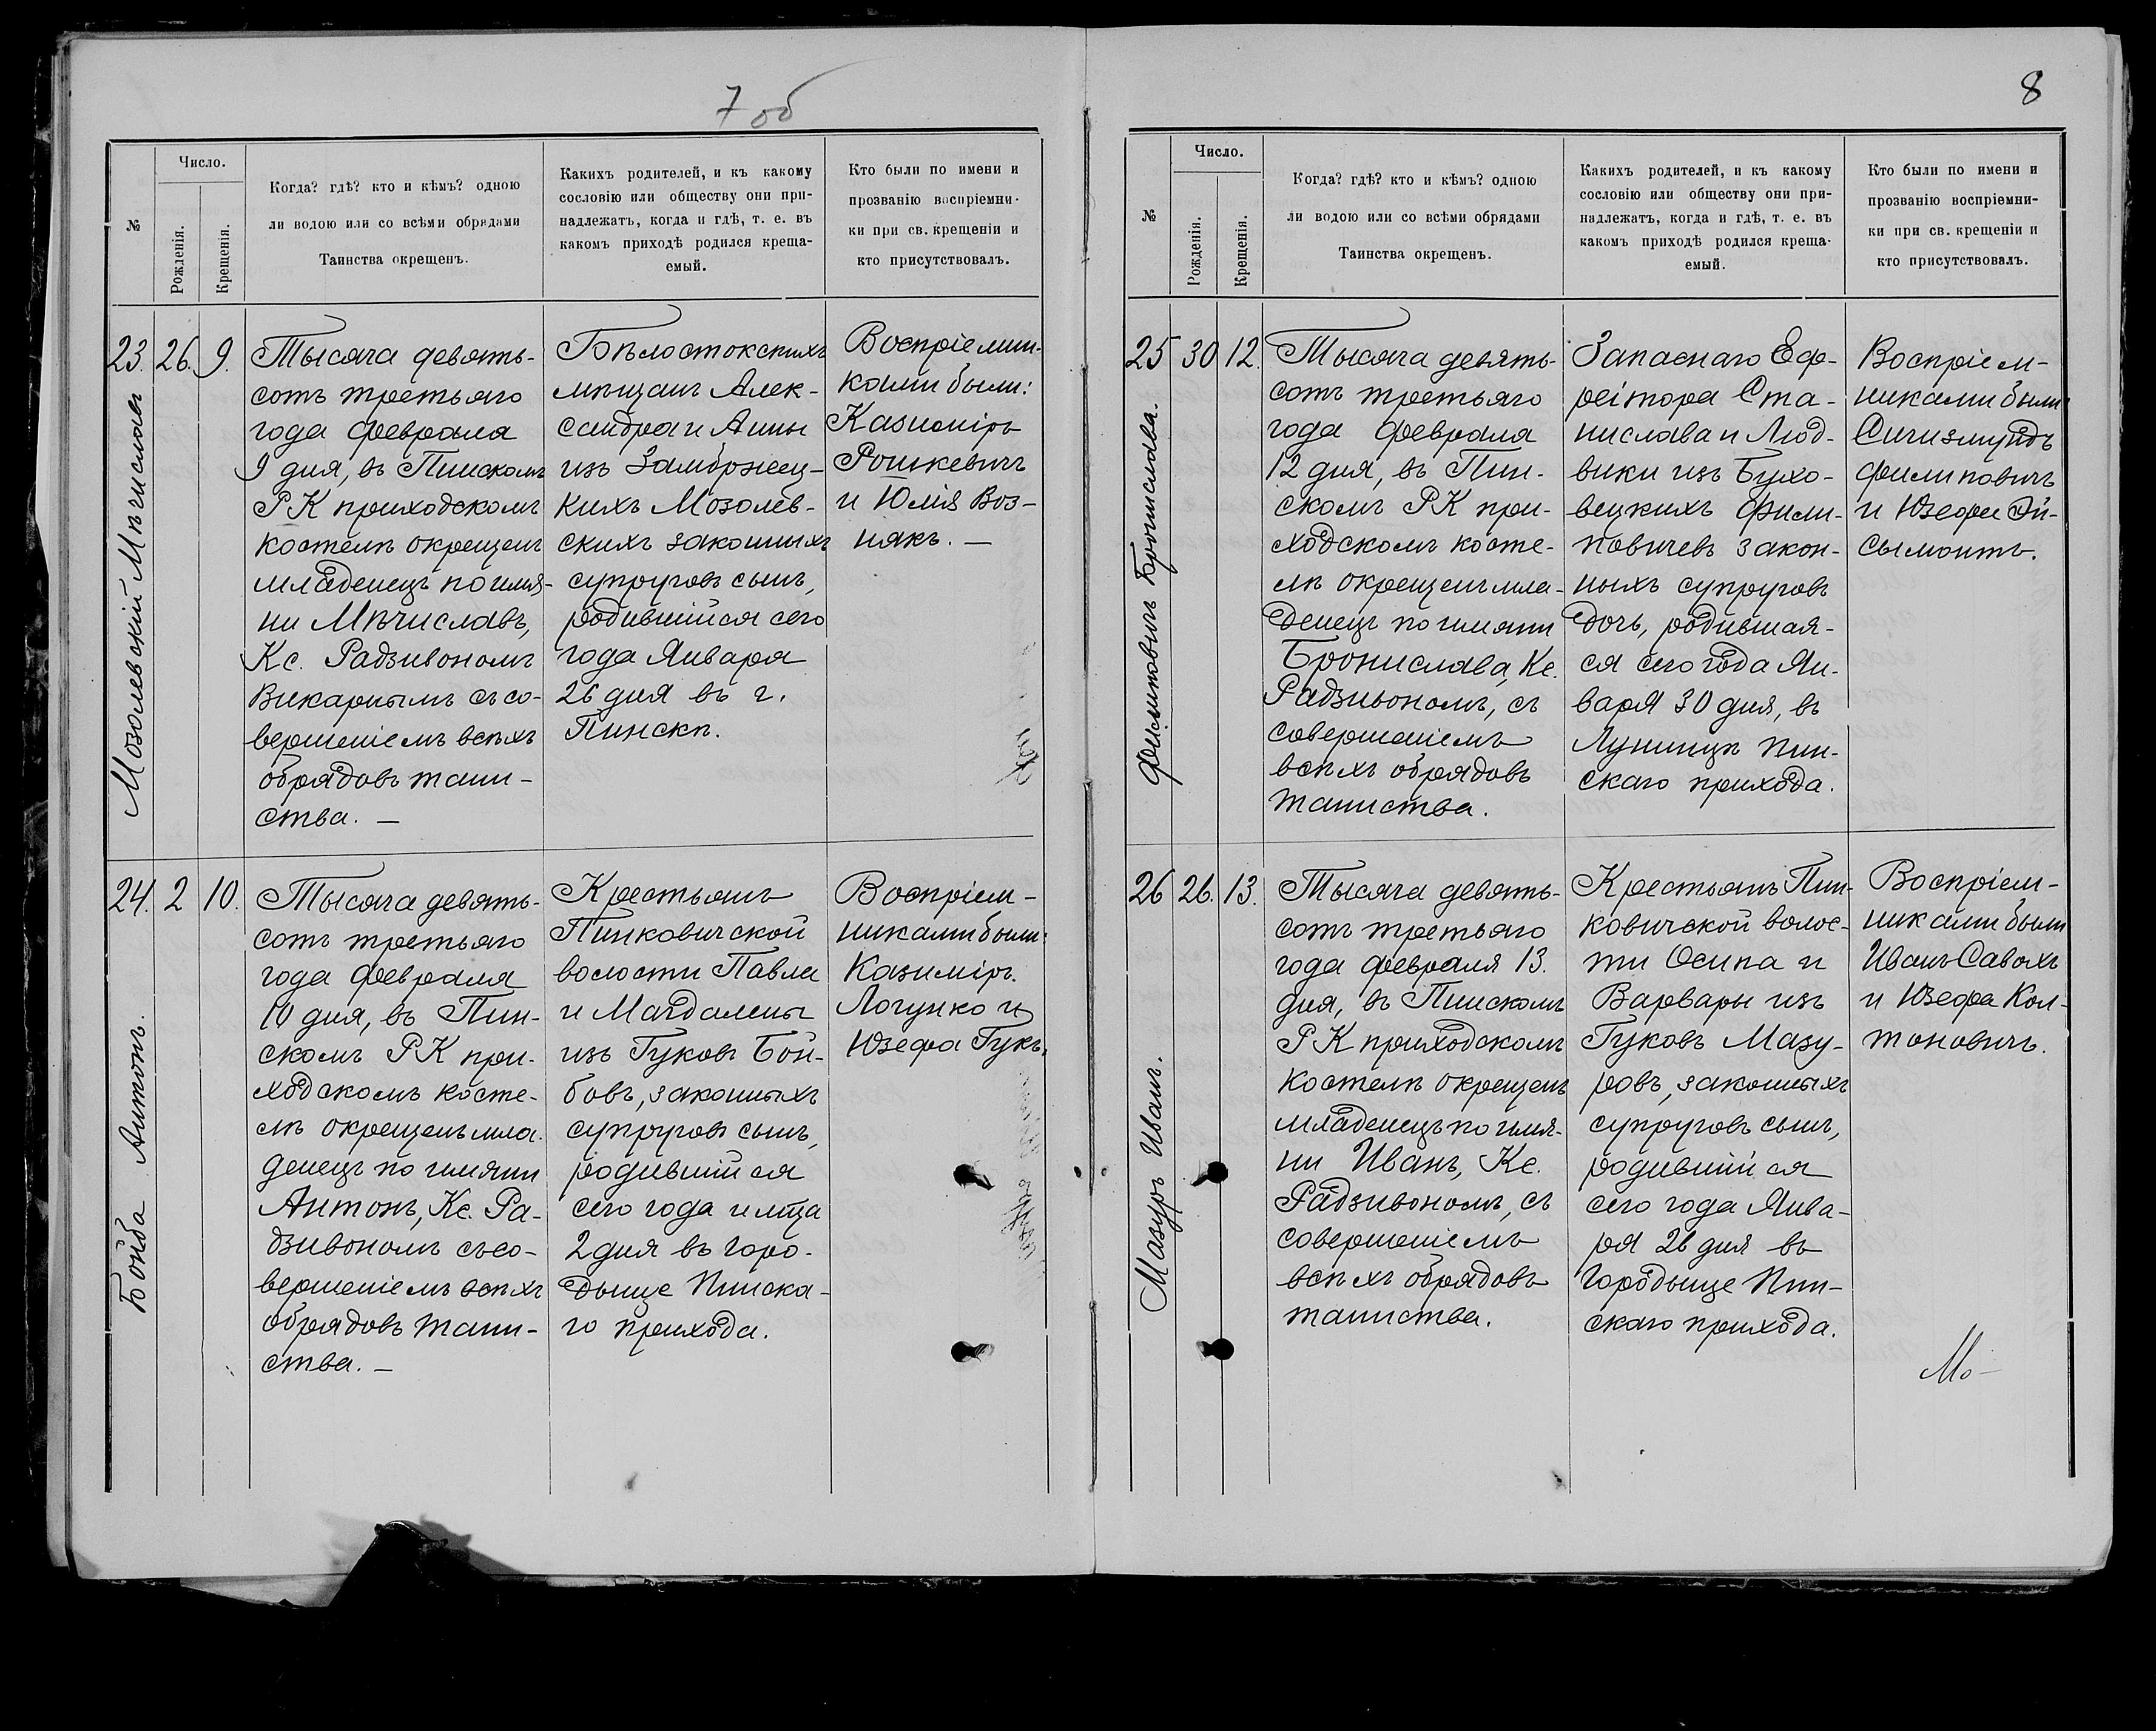 7 об
№
Число.
Рожденія.
Крещенія.
Когда? гдѣ? кто и кѣмъ? одною
ли водою или со всѣми обрядами
Таинства окрещенъ.
Какихъ родителей, и къ какому
сословію или обществу они при-
надлежатъ, когда и гдѣ, т. е. въ
какомъ приходѣ родился креща-
емый.
Кто были по имени и
прозванію воспріемни-
ки при св. крещеніи и
кто присутствовалъ.
23.
Мозолевскій Мѣчиславъ
26.
9.
Тысяча девять-
сотъ третьяго
года февраля
9 дня, въ Пинскомъ
РК приходскомъ
костелѣ окрещенъ
младенецъ по имя-
ни Мѣчиславъ,
Кс. Радзивономъ
Викарнымъ съ со-
вершеніемъ всѣхъ
обрядовъ таин-
ства. —
Бѣлостокскихъ
мѣщанъ Алек-
сандра и Анны
изъ Замбржец-
кихъ Мозолев-
скихъ законныхъ
супруговъ сынъ,
родившійся сего
года Января
26 дня въ г.
Пинскѣ.
Воспріемни-
ками были:
Казиміръ
Рошкевичъ
и Юлія Воз-
някъ. —
24.
Бойба Антонъ.
2
10.
Тысяча девять-
сотъ третьяго
года февраля
10 дня, въ Пин-
скомъ РК при-
ходскомъ косте-
лѣ окрещенъ мла-
денецъ по имяни
Антонъ, Кс. Ра-
дзивономъ съ со-
вершеніемъ всѣхъ
обрядовъ таин-
ства. —
Крестьянъ
Пинковичской
волости Павла
и Магдалены
изъ Гуковъ Бой-
бовъ, законныхъ
супруговъ сынъ,
родившійся
сего года и мѣца
2 дня въ Горо-
дыще Пинска-
го прихода.
Воспріем-
никами были:
Казиміръ
Логунко и
Юзефа Гукъ.
8
№
Число.
Рожденія.
Крещенія.
Когда? гдѣ? кто и кѣмъ? одною
ли водою или со всѣми обрядами
Таинства окрещенъ.
Какихъ родителей, и къ какому
сословію или обществу они при-
надлежатъ, когда и гдѣ, т. е. въ
какомъ приходѣ родился креща-
емый.
Кто были по имени и
прозванію воспріемни-
ки при св. крещеніи и
кто присутствовалъ.
25
Филиповичъ Бронислава.
30
12.
Тысяча девять-
сотъ третьяго
года февраля
12 дня, въ Пин-
скомъ РК при-
ходскомъ косте-
лѣ окрещенъ мла-
денецъ по имяни
Бронислава, Кс.
Радзивономъ, съ
совершеніемъ
всѣхъ обрядовъ
таинства.
Запаснаго Еф-
рейтора Ста-
нислава и Люд-
вики изъ Бухо-
вецкихъ Фили-
повичевъ закон-
ныхъ супруговъ
дочь, родившая-
ся сего года Ян-
варя 30 дня, въ
Лунинцѣ Пин-
скаго прихода.
Воспріем-
никами были
Сигизмундъ
Филиповичъ
и Юзефа Эй-
сымонтъ.
26
Мазуръ Иванъ.
26.
13.
Тысяча девять-
сотъ третьяго
года февраля 13.
дня, въ Пинскомъ
РК приходскомъ
костелѣ окрещенъ
младенецъ по имя-
ни Иванъ, Кс.
Радзивономъ, съ
совершеніемъ
всѣхъ обрядовъ
таинства.
Крестьянъ Пин-
ковичской волос-
ти Осипа и
Варвары изъ
Гуковъ Мазу-
ровъ, законныхъ
супруговъ сынъ,
родившійся
сего года Янва-
ря 26 дня въ
Городыще Пин-
скаго прихода.
Воспріем-
никами были
Иванъ Савахъ
и Юзефа Кол-
тоновичъ.